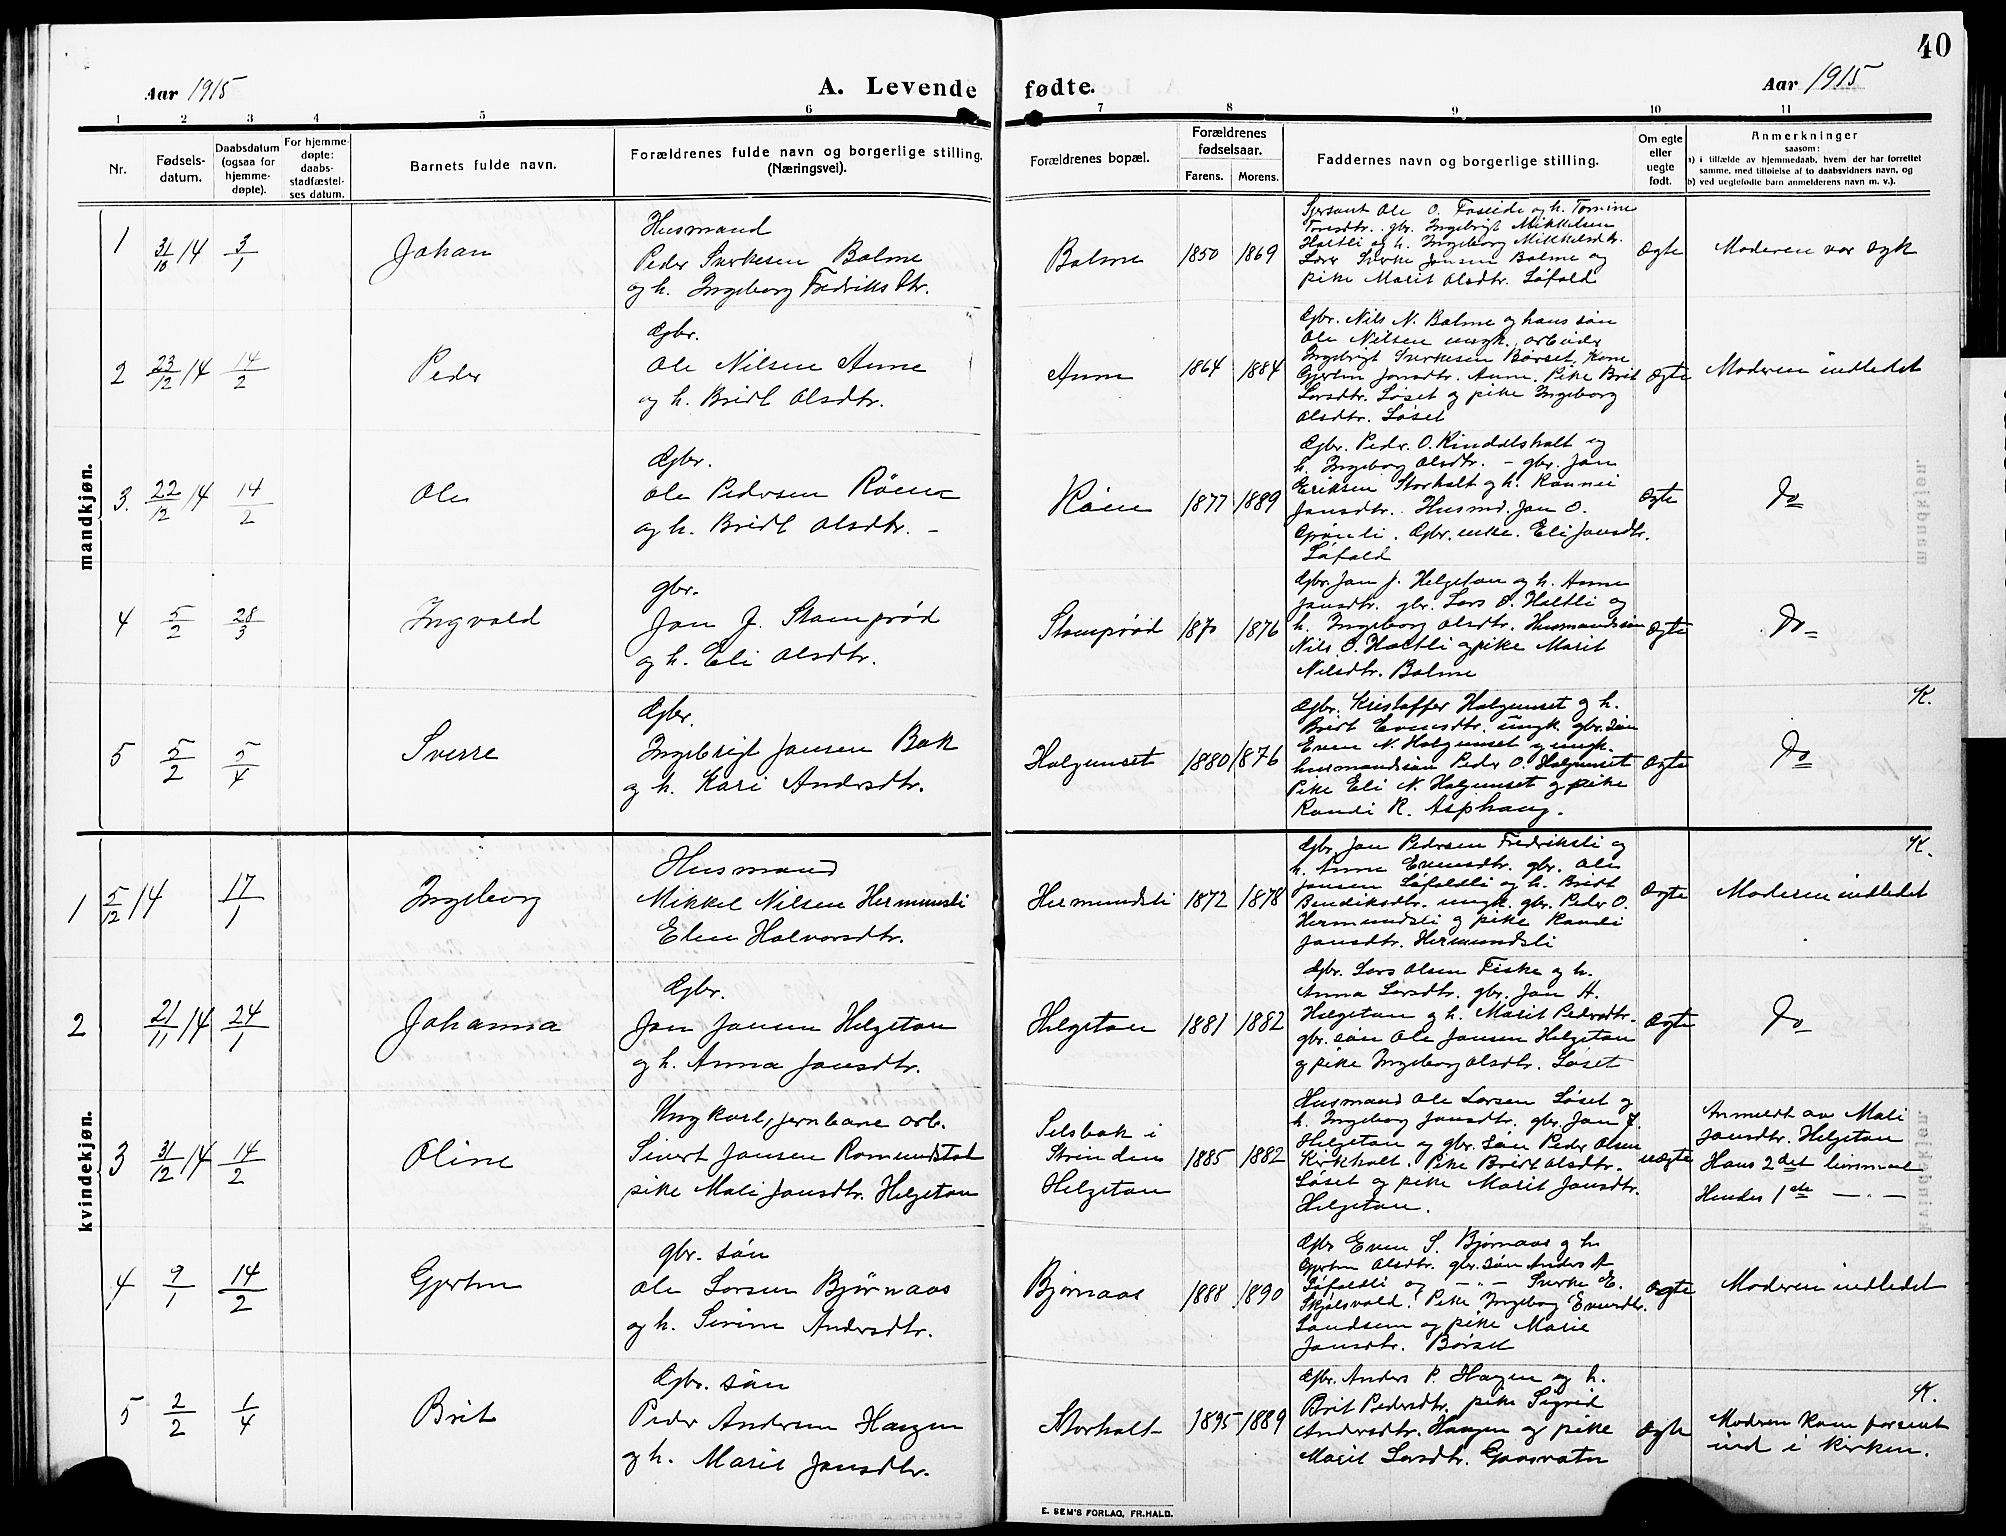 40
Aar 1915
A. Levende fødte.
Aar 1915
1 2 3 4 5 6 7 8 9 10 11
Nr.
Fødsels-
datum.
Daabsdatum
(ogsaa for
hjemme-
døpte).
For hjemme-
døpte:
daabs-
stadfæstel-
ses datum.
Barnets fulde navn.
Forældrenes fulde navn og borgerlige stilling.
(Næringsvei).
Forældrenes bopæl.
Forældrenes
fødselsaar.
Farens. Morens.
Faddernes navn og borgerlige stilling.
Om egte
eller
uegte
født.
Anmerkninger
saasom:
a) i tilfælde av hjemmedaab, hvem der har forrettet
samme, med tilføielse af to daabsvidners navn, og
b) ved uegtefødte barn anmelderens navn m. v.).
mandkjøn.
1 31/10 14 3/1 Johan
Husmand
Peder Sverkesen Bolme
og h. Ingeborg Fredriksdtr.
Bolme 1850 1869
Sersant Ole O. Foseide og h. Tomine
Toresdtr. gbr. Ingebrigt Mikkelsen
Holtli og h. Ingeborg Mikkelsdtr.
Lærer Sverke Jonsen Bolme og
pike Marit Olsdtr. Løfald
Ægte Moderen var syk
2 23/12 14 14/2 Peder
Gbr.
Ole Nilsen Aune
og h. Bridt Olsdtr.
Aune 1864 1884
Gbr. Nils N. Bolme og hans søn
Ole Nilsen ungk. arbeider
Ingebrigt Sverkesen Børset, Kone
Gjertru Jonsdtr. Aune. Pike Brit
Larsdtr. Løset og pike Ingeborg
Olsdtr. Løset
Ægte Moderen indledet
3. 22/12 14 14/2 Ole
Gbr.
Ole Pedersen Røen
og h. Bridt Olsdtr. –
Røen 1877 1889
Gbr. Peder O. Rindalsholt og
h. Ingeborg Olsdtr. – gbr. Jon
Eriksen Storholt og h. Rønnei
Jonsdtr. Husmd. Jon O.
Grønli. Gbr. enke. Eli Jonsdtr.
Løfald
Ægte Do
4 5/2 28/3 Ingvald
gbr.
Jon J. Stomprød
og h. Eli Olsdtr.
Stomprød 1870 1876
Gbr. Jon J. Helgetun og h. Anne
Jonsdtr. gbr. Lars O. Holtli og
h. Ingeborg Olsdtr. Husmandssøn
Nils O. Holtli og pike Marit
Nilsdtr. Bolme
Ægte Do
5 5/2 5/4 Sverre
Gbr.
Ingebrigt Jonsen Bak
og h. Kari Andersdtr.
Halgunset 1880 1876
Gbr. Kristoffer Halgunset og h.
Bridt Evensdtr. ungk. gbr. søn
Even N. Halgunset og ungk.
husmandssøn Peder O. Halgunset
Pike Eli N. Halgunset og pike
Randi R. Asphaug.
Ægte Do
K.
kvindekjøn.
1 5/12 14 17/1 Ingeborg
Husmand
Mikkel Nilsen Hermunsli
Elen Halvorsdtr.
Hermundsli 1872 1878
Gbr. Jon Pedersen Fredriksli og
h. Anne Evensdtr. gbr. Ole
Jonsen Løfaldli og h. Bridt
Bendiksdtr. ungk. gbr. Peder O.
Hermundsli og pike Randi
Jonsdtr. Hermundsli
Ægte Moderen indledet
K.
2 21/11 14 24/1 Johanna
Gbr.
Jon Jonsen Helgetun
og h. Anna Jonsdtr.
Helgetun 1881 1882
Gbr. Lars Olsen Fiske og h.
Anna Larsdtr. gbr. Jon H.
Helgetun og h. Marit Pedersdtr.
gbr. søn Ole Jonsen Helgetun
og pike Ingeborg Olsdtr. Løset
Ægte Do
3 31/12 14 14/2 Oline
Ungkarl, jernbane arb.
Sivert Jonsen Romundstad
pike Mali Jonsdtr. Helgetun
Selsbak i
Strinden
Helgetun
1885 1882
Husmand Ole Larsen Løset og
h. Ingeborg Jonsdtr. gbr. Jon J.
Helgetun og gbr. søn Peder Olsen
Kirkholt. Pike Bridt Olsdtr.
Løset og pike Marit Jonsdtr.
Helgetun.
uægte
Anmeldt av Mali
Jonsdtr. Helgetun
Hans 2det leiermaal
Hendes 1ste — " —
4 9/1 14/2 Gjertru
gbr. søn
Ole Larsen Bjørnaas
og h. Sirine Andersdtr.
Bjørnaas 1888 1890
Gbr Even S. Bjørnaas og h
Gjertru Olsdtr. gbr. søn Anders A
Løfaldli og — " — Sverke E.
Skjølsvold. Pike Ingeborg Evensdtr.
Landsem og pike Marie
Jonsdtr. Børset
Ægte Moderen indledet
5 2/2 1/4 Brit
Gbr. søn
Peder Andersen Haugen
og h. Marit Jonsdtr.
Storholt 1895 1889
Gbr. Anders P. Haugen og h.
Brit Pedersdtr. pike Sigrid
Andersdtr. Haugen og pike
Marit Larsdtr. Gaasvatn
Ægte
K.
Moderen kom forsent
ind i kirken.
E. SEM'S FORLAG, FR.HALD.